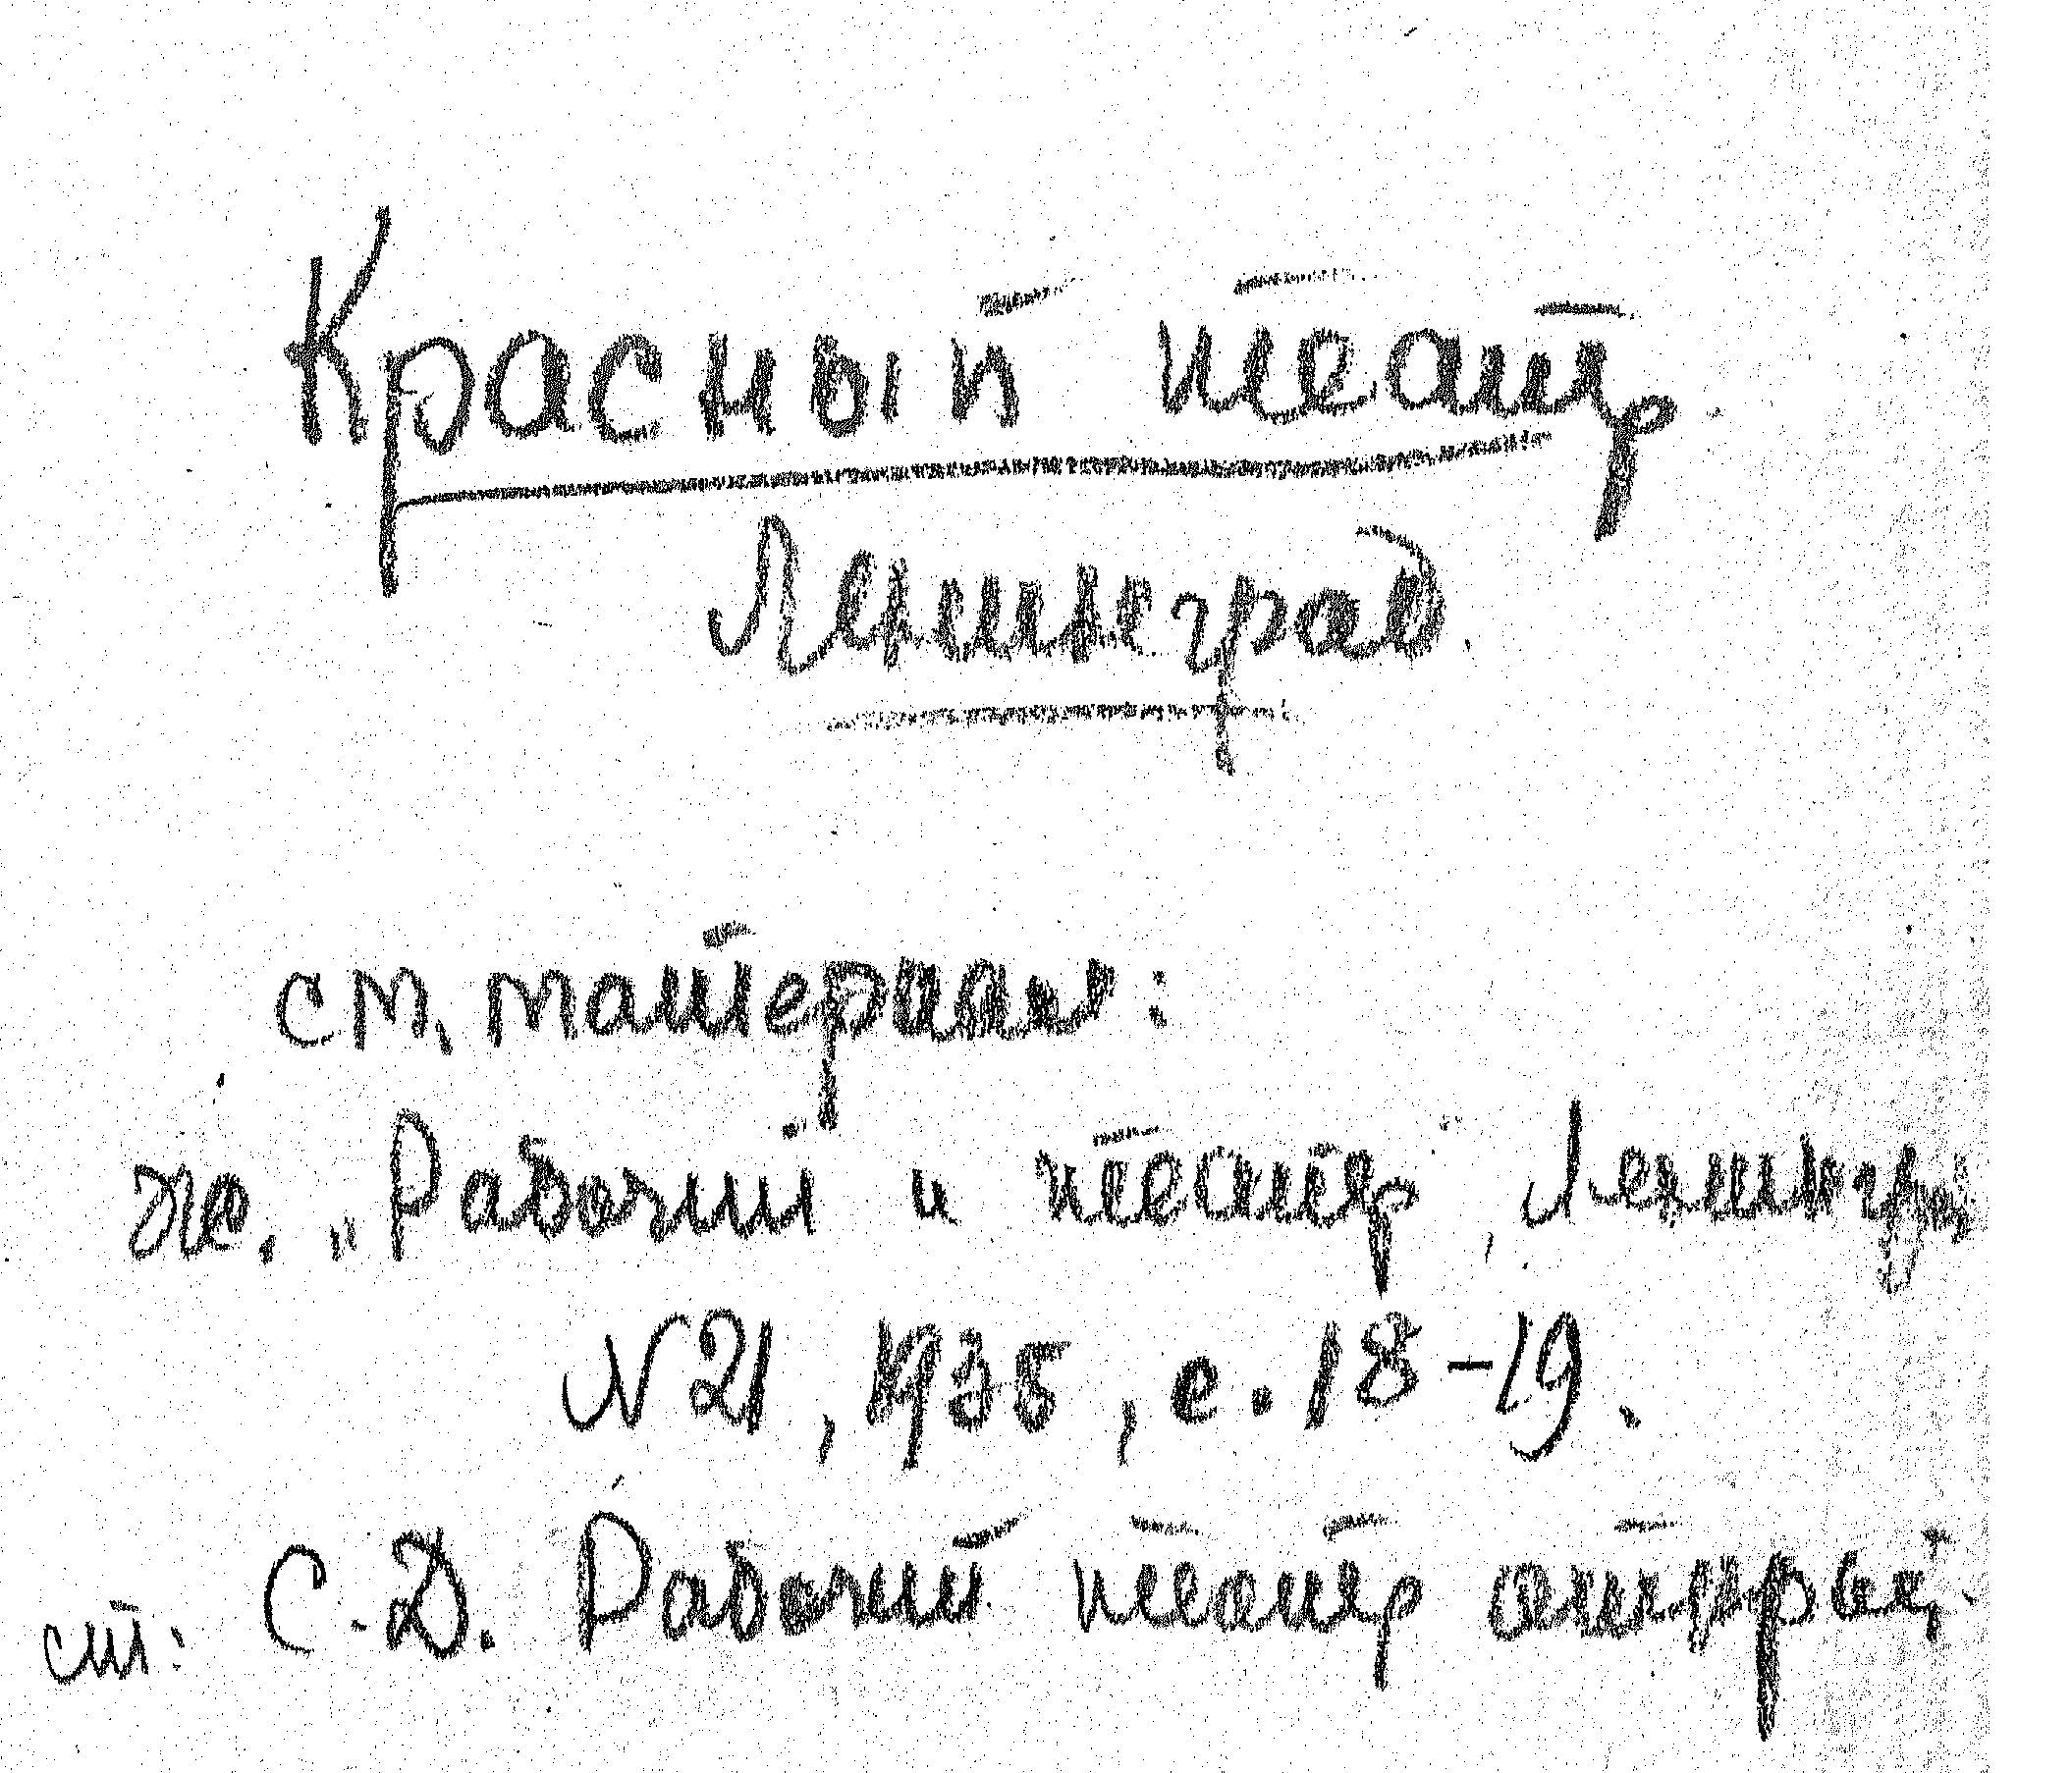 Красный театр
Ленинград.
см. материал:
ж. „Рабочий и театр", Ленингр
N 21, 1935, с. 18-19.
ст: С.Д. Рабочий театр